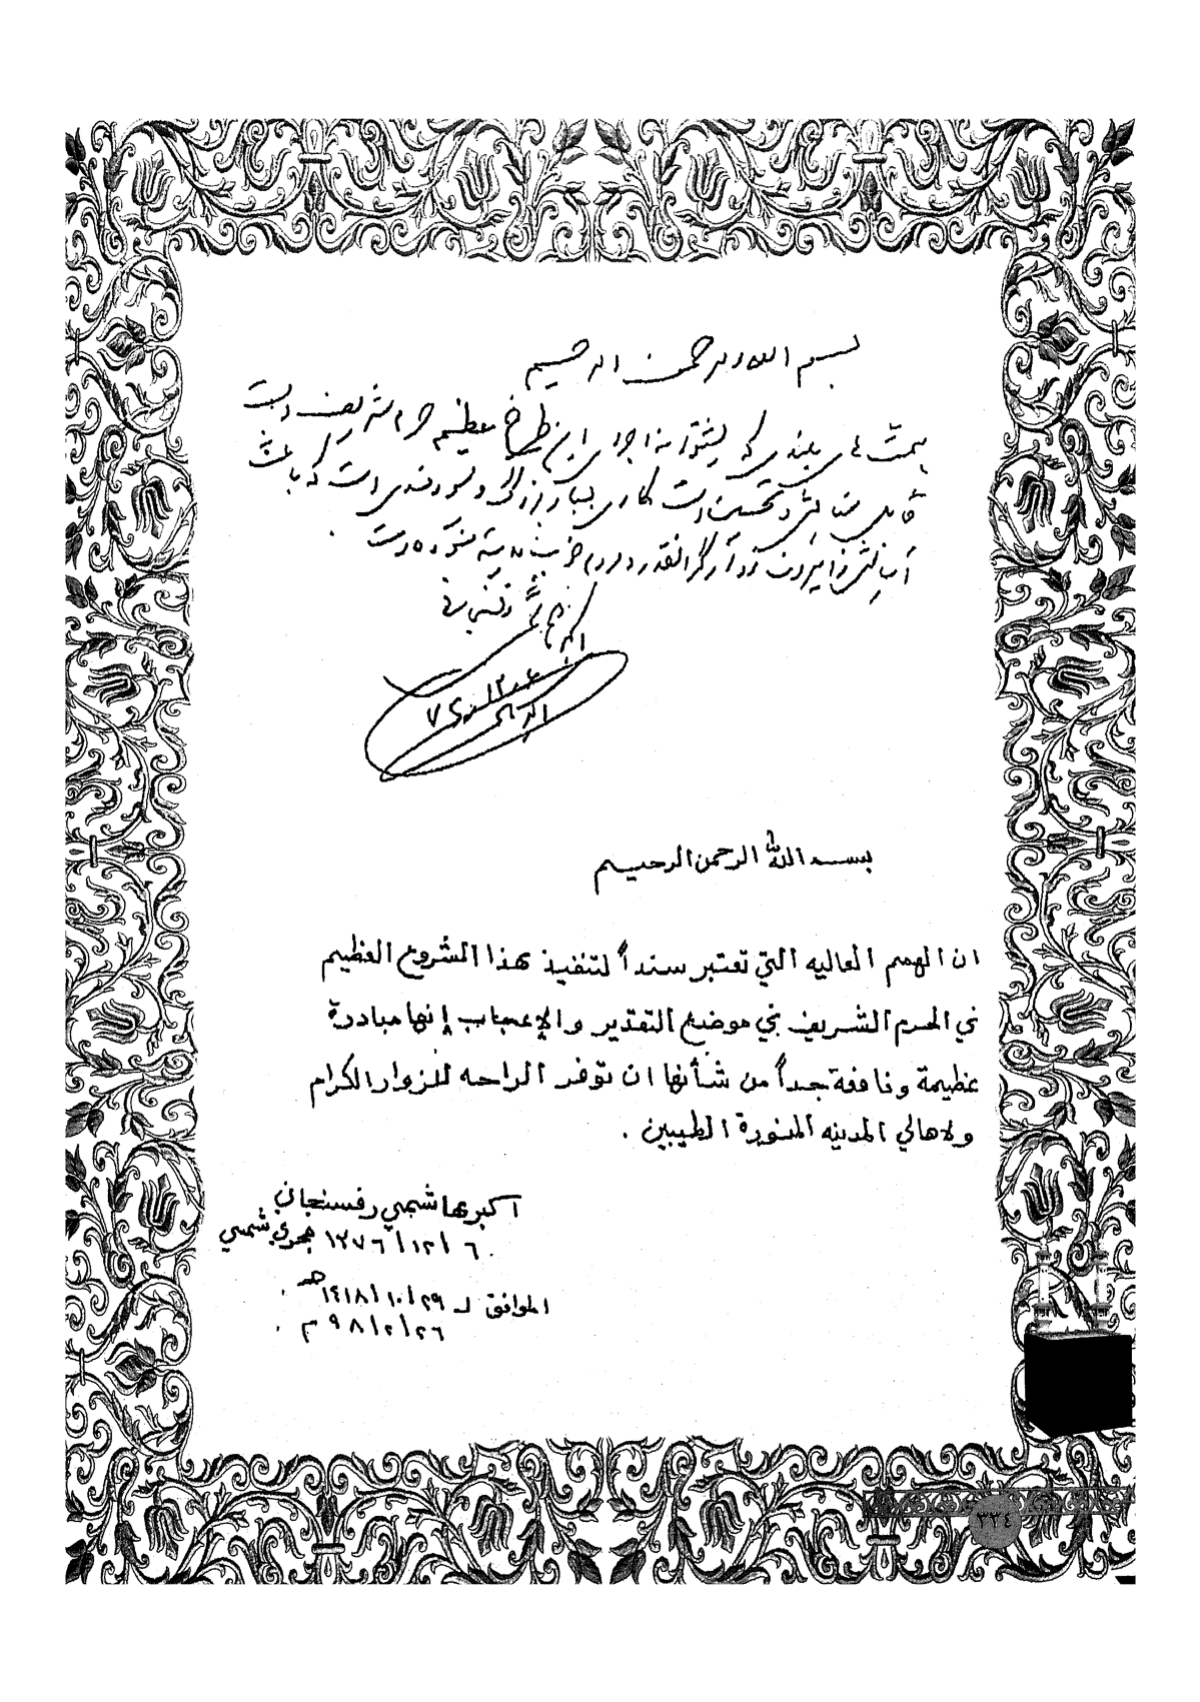 بسم الله الرحمن الرحيم
همت های بلندی که پشتوانه اجرای این طرح عظیم حرم شریف است
قابل ستایش و تحسین است کاری بسیار بزرگ و سودمندی است که باعث
آسایش زائران و مردم خوب مدینه منوره است .
اکبر هاشمی رفسنجانی
بسم الله الرحمن الرحيم
ان الهمم العاليه التي تعتبر سنداً لتنفيذ هذا الشروع العظيم
في الحرم الشريف هي موضع التقدير والإعجاب إنها مبادرة
عظيمة ونافعة جداً من شأنها ان توفر الراحه للزوار الكرام
ولاهالي المدينه المنورة الطيبين .
اكبر هاشمي رفسنجاني
٦ / ١٢ / ١٣٧٦ هجري شمسي
الموافق لـ ٢٩ / ١٠ / ١٤١٨ هـ .
٢٦ / ٢ / ٩٨ م .
٣٣٤